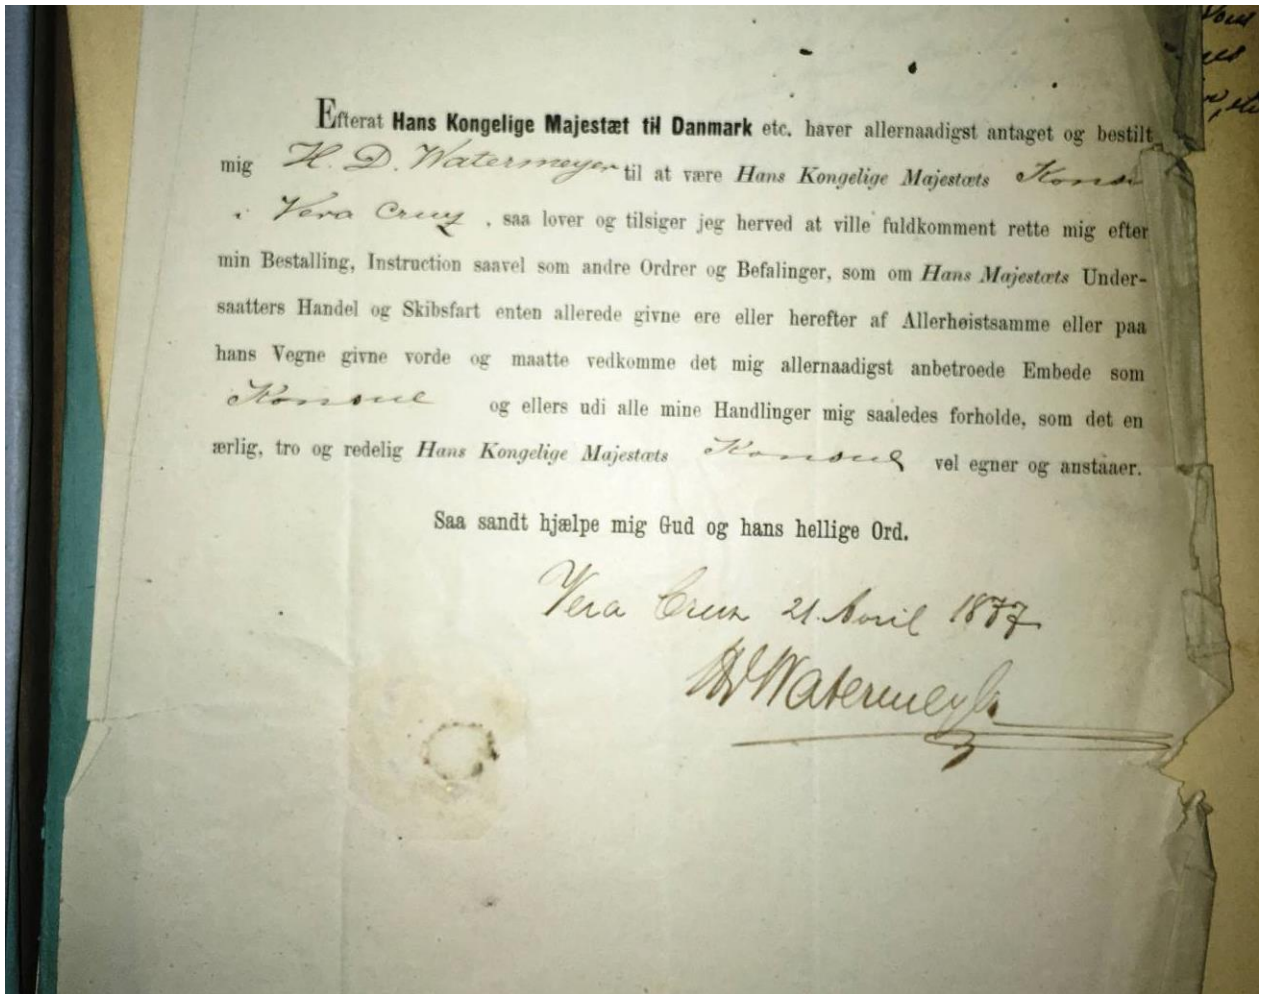 Efterat Hans Kongelige Majestæt til Danmark etc. haver allernaadigst antaget og bestilt
mig H. D. Watermeyer til at være Hans Kongelige Majestæts Konsu
i Vera Cruz, saa lover og tilsiger jeg herved at ville fuldkomment rette mig efter
min Bestalling, Instruction saavel som andre Ordrer og Befalinger, som om Hans Majestæts Under-
saatters Handel og Skibsfart enten allerede givne ere eller herefter af Allerhøistsamme eller paa
hans Vegne givne vorde og maatte vedkomme det mig allernaadigst anbetroede Embede som
Konsul og ellers udi alle mine Handlinger mig saaledes forholde, som det en
ærlig, tro og redelig Hans Kongelige Majestæts Konsul vel egner og anstaaer.
Saa sandt hjælpe mig Gud og hans hellige Ord.
Vera Cruz 21. April 1877
HD Watermeyer